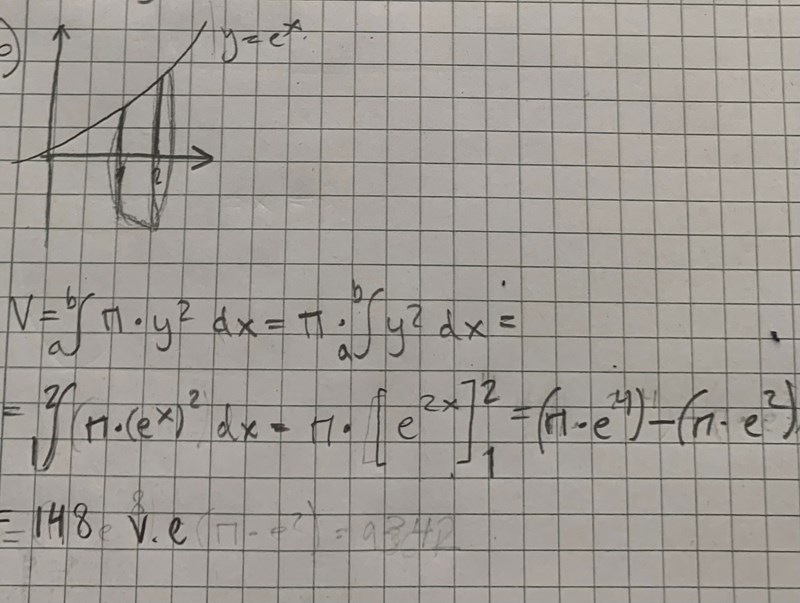 y = e^x.
1 2
V = a∫b π · y² dx = π · a∫b y² dx =
= 1∫2 (π · (e^x)² dx = π · [e^2x]²₁ = (π · e^4) - (π · e²)
= 148 v.e